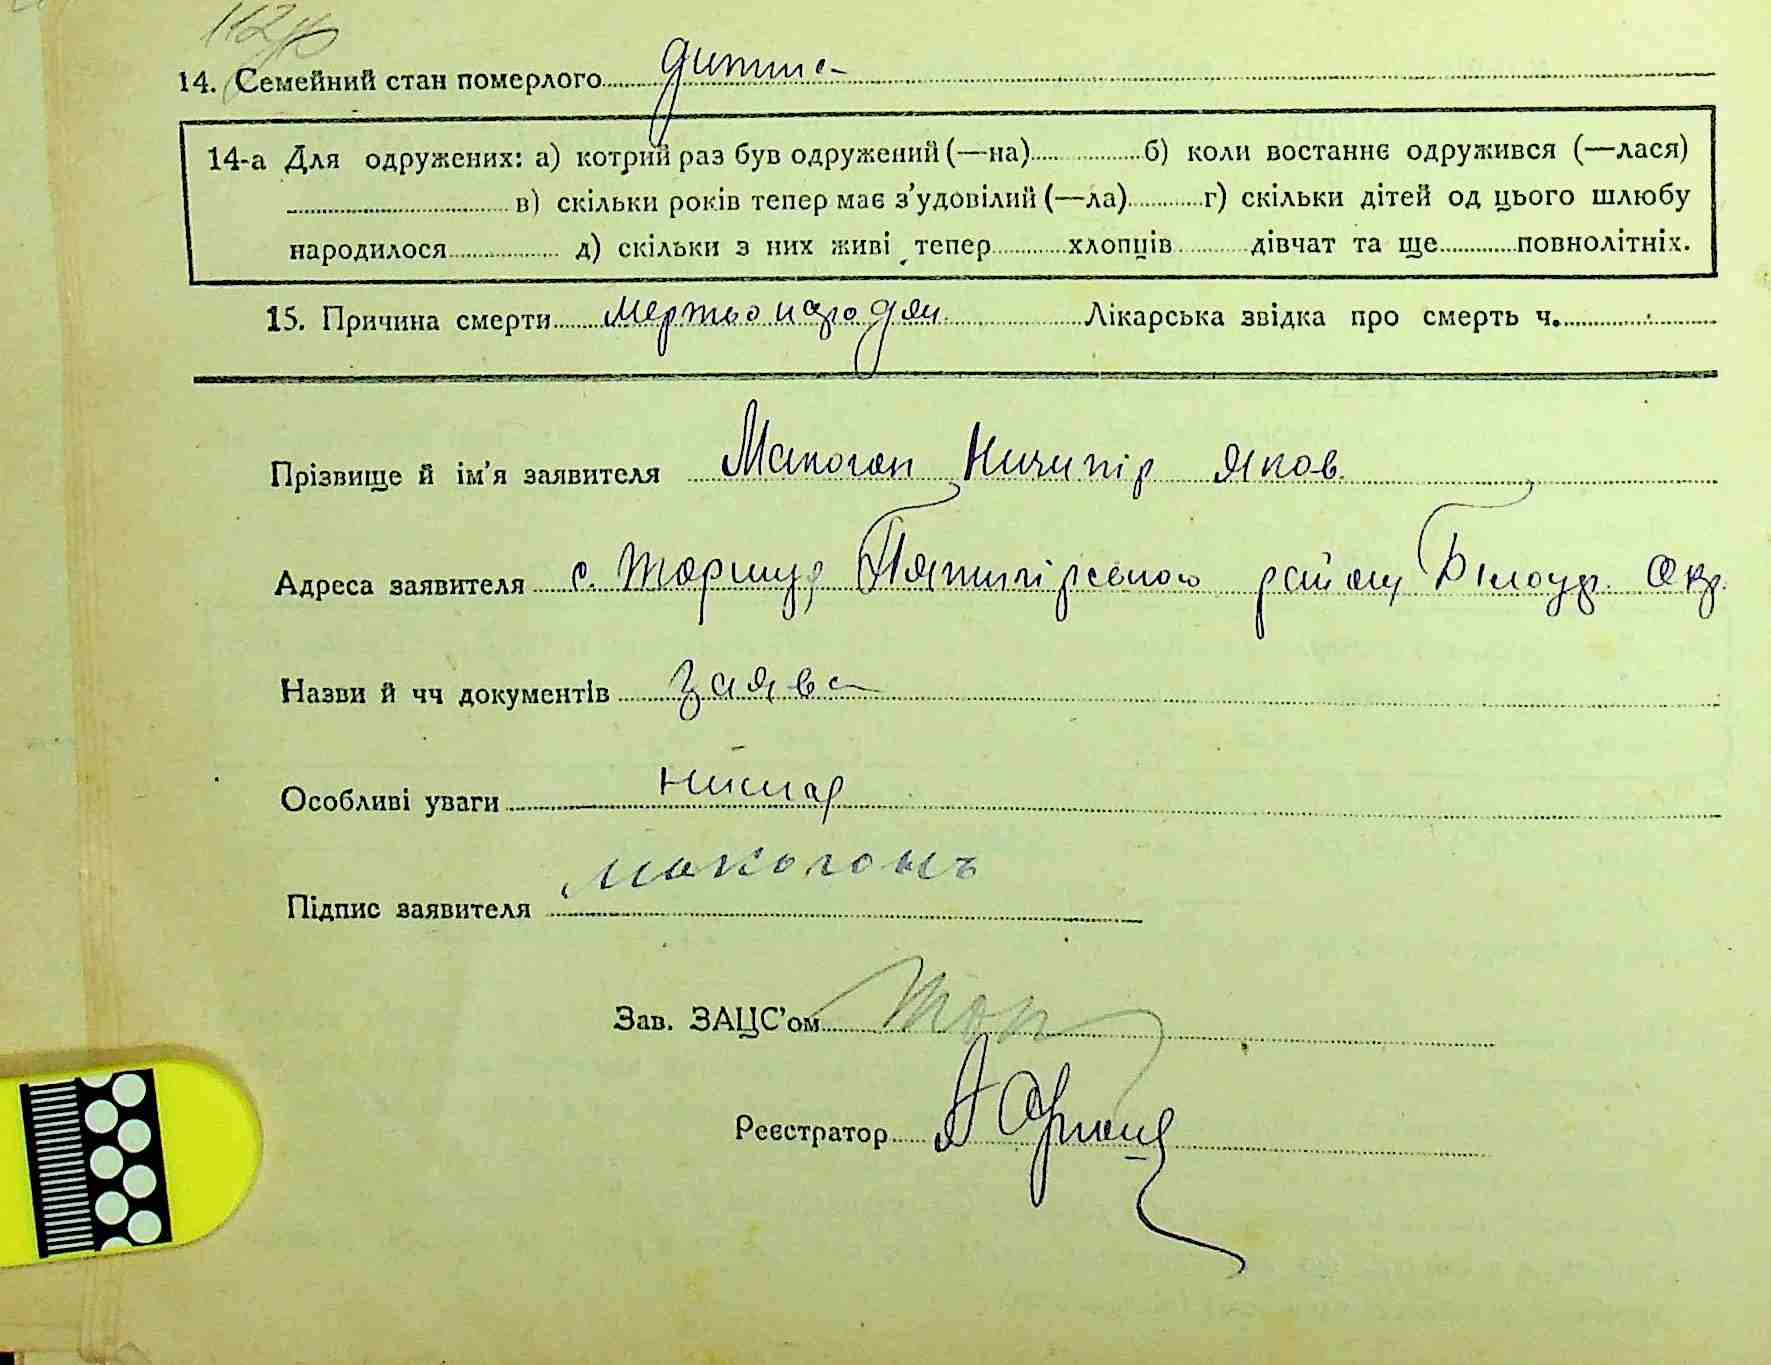 14. Семейний стан померлого дитина
14-а Для одружених: а) котрий раз був одружений (—на) б) коли востаннє одружився (—лася)
в) скільки років тепер має з'удовілий (—ла) г) скільки дітей од цього шлюбу
народилося д) скільки з них живі тепер хлопців дівчат та ще повнолітніх.
15. Причина смерти мертвонародж Лікарська звідка про смерть ч.
Прізвище й ім'я заявителя Макогон Ничипір Яков.
Адреса заявителя с. Жашків Пятигірського району Білоцер. Окр.
Назви й чч документів заява
Особливі уваги немає
Підпис заявителя Макогонъ
Зав. ЗАЦС'ом
Реєстратор